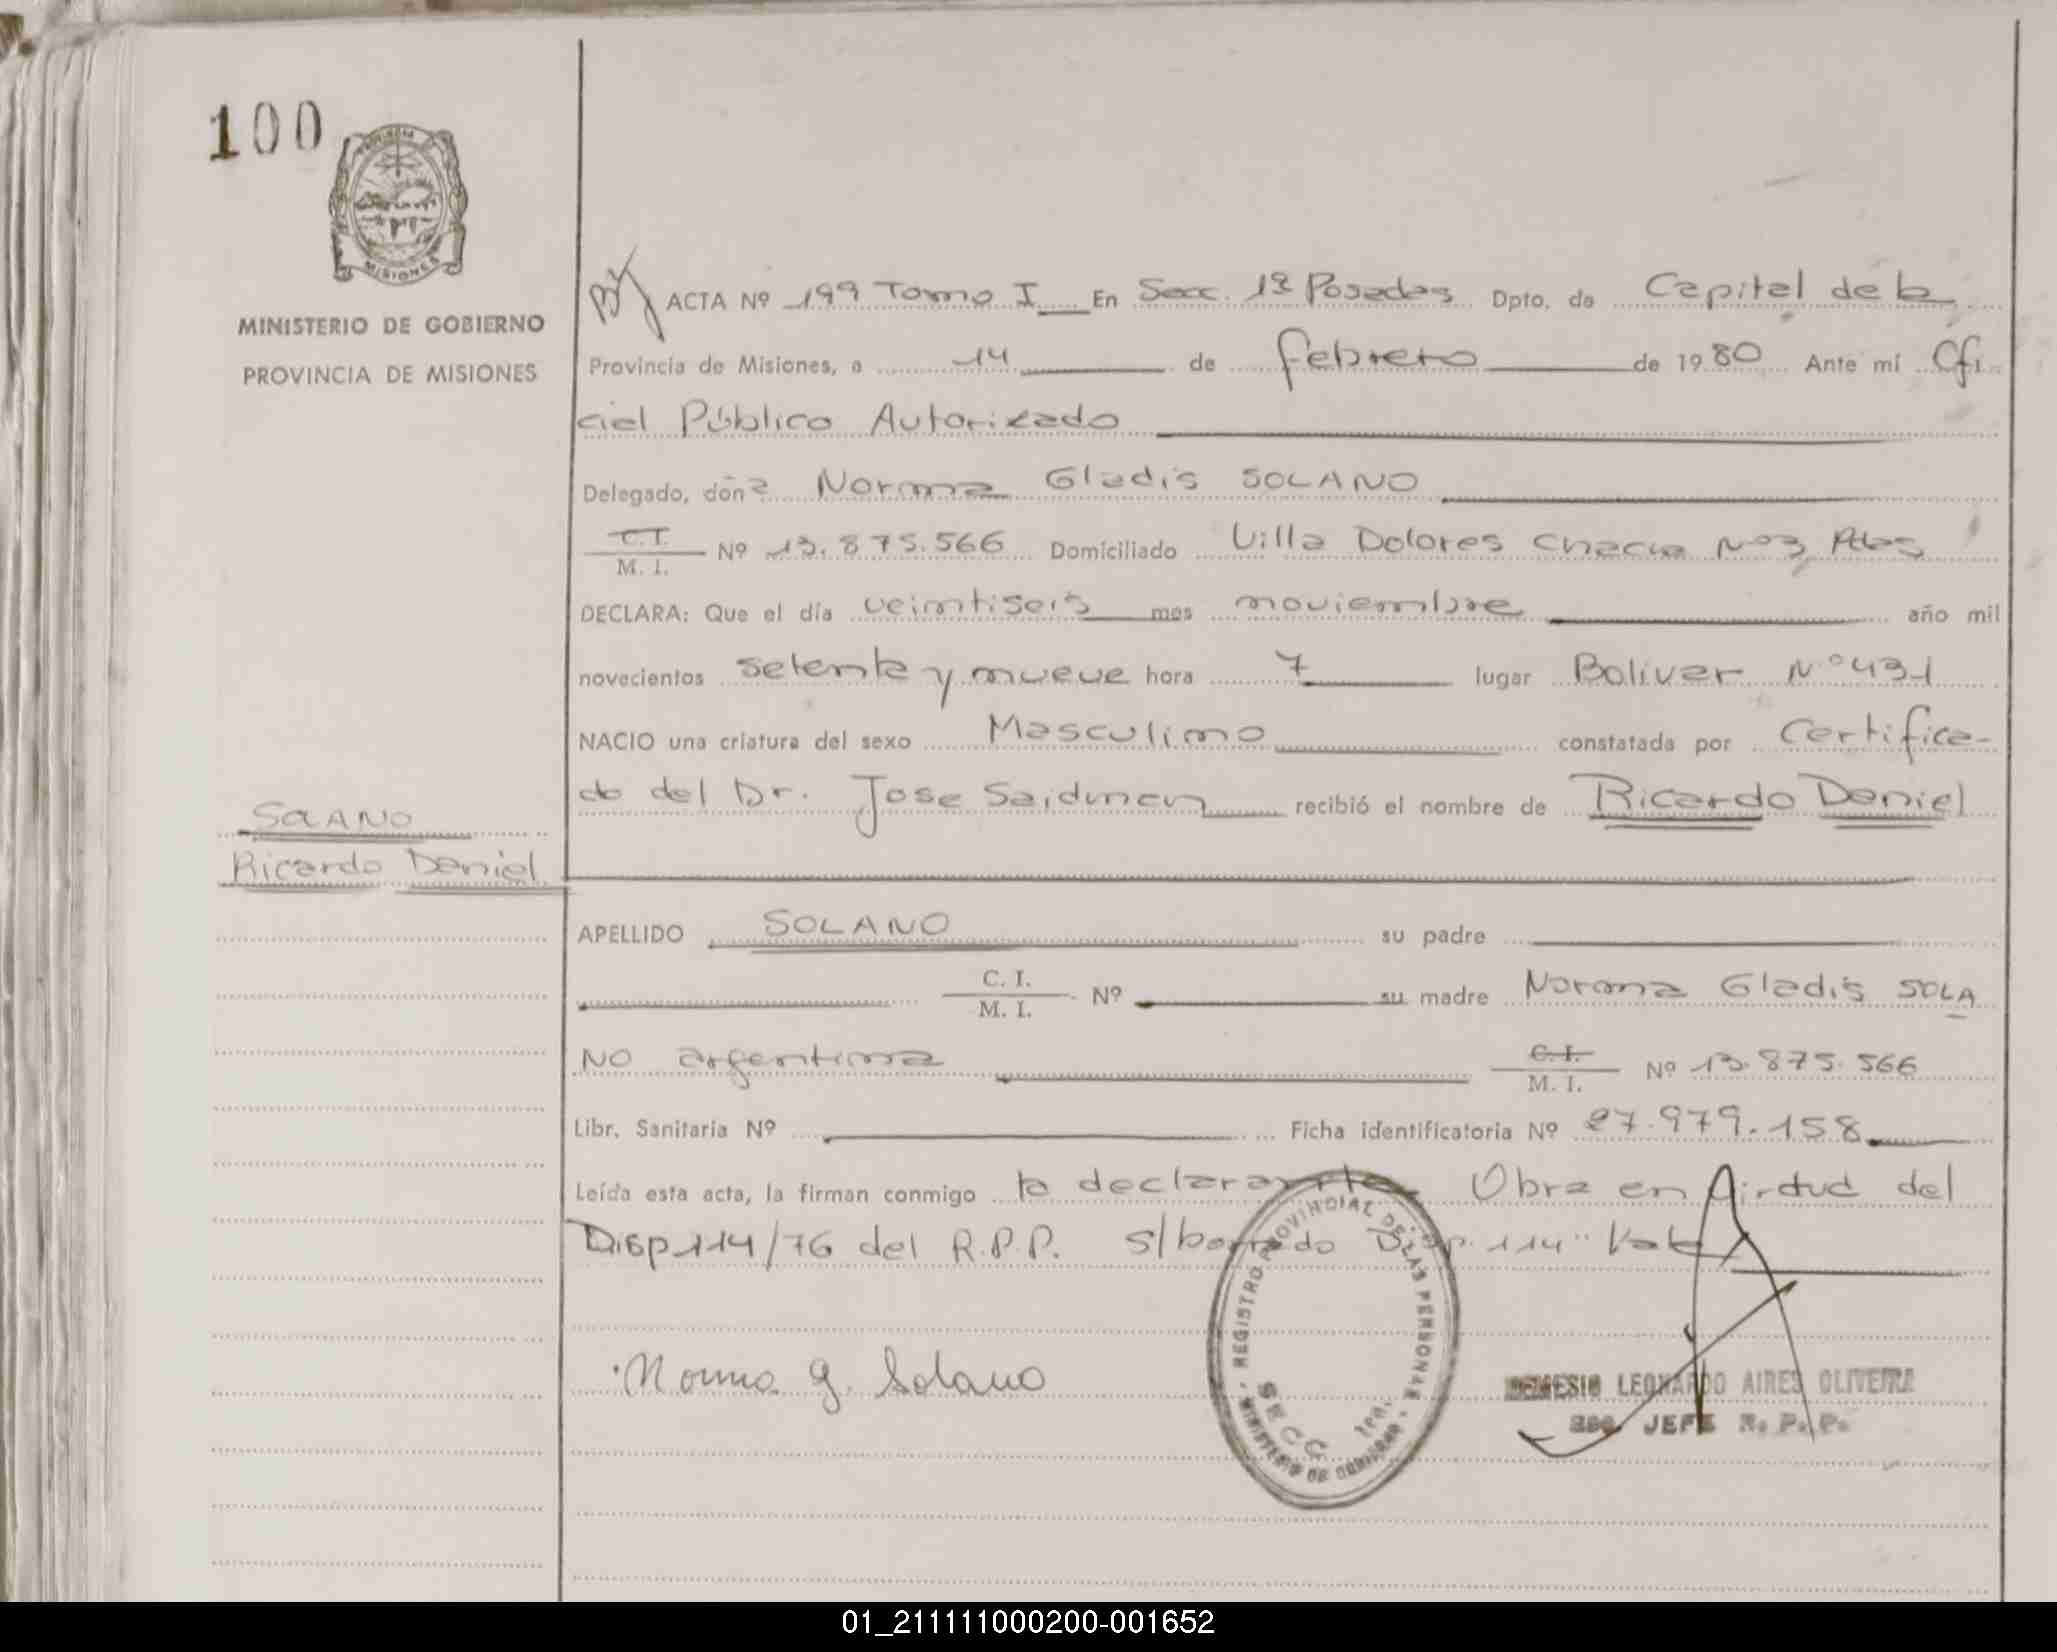 100
MISIONES
MINISTERIO DE GOBIERNO
PROVINCIA DE MISIONES
ACTA Nº 199 Tomo I En Secc. 1ª Posadas Dpto. de Capital de la
Provincia de Misiones, a 14 de febrero de 1980 Ante mí Ofi
cial Público Autorizado
Delegado, doña Norma Gladis SOLANO
C.I.
M. I. Nº 13.875.566 Domiciliado Villa Dolores Chacra Nº3 Pdas
DECLARA: Que el día veintiseis mes noviembre año mil
novecientos setenta y nueve hora 7 lugar Bolivar Nº 431
NACIO una criatura del sexo Masculino constatada por Certifica-
do del Dr. Jose Saidman recibió el nombre de Ricardo Daniel
SOLANO
Ricardo Daniel
APELLIDO SOLANO su padre
C. I.
M. I. Nº su madre Norma Gladis SOLA
NO argentina C.I.
M. I. Nº 13.875.566
Libr. Sanitaria Nº Ficha identificatoria Nº 27.979.158
Leída esta acta, la firman conmigo la declarante. Obra en Virtud del
Disp 114/76 del R.P.P. s/borrado Disp. 114" Vale
Norma G. Solano
REGISTRO PROVINCIAL DE LAS PERSONAS
SECC. 1ra.
MINISTERIO DE GOBIERNO
NEMESIO LEONARDO AIRES OLIVEIRA
JEFE R. P. P.
01_211111000200-001652